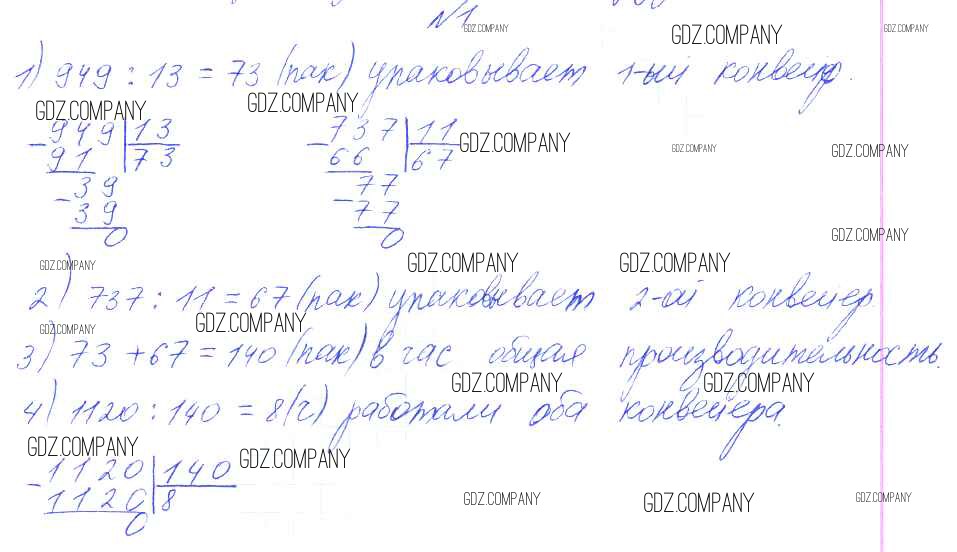 №1
GDZ.COMPANY GDZ.COMPANY GDZ.COMPANY
1) 949 : 13 = 73 (пак) упаковывает 1-ый конвейер.
GDZ.COMPANY GDZ.COMPANY
949 | 13 737 | 11 GDZ.COMPANY GDZ.COMPANY GDZ.COMPANY
- 91 73 - 66 67
39 77
- 39 - 77
0 0
GDZ.COMPANY
GDZ.COMPANY GDZ.COMPANY GDZ.COMPANY
2) 737 : 11 = 67 (пак) упаковывает 2-ой конвейер
GDZ.COMPANY GDZ.COMPANY
3) 73 + 67 = 140 (пак) в час общая производительность.
GDZ.COMPANY GDZ.COMPANY
4) 1120 : 140 = 8 (ч) работали оба конвейера.
GDZ.COMPANY GDZ.COMPANY
- 1120 | 140
1120 8
0
GDZ.COMPANY GDZ.COMPANY GDZ.COMPANY